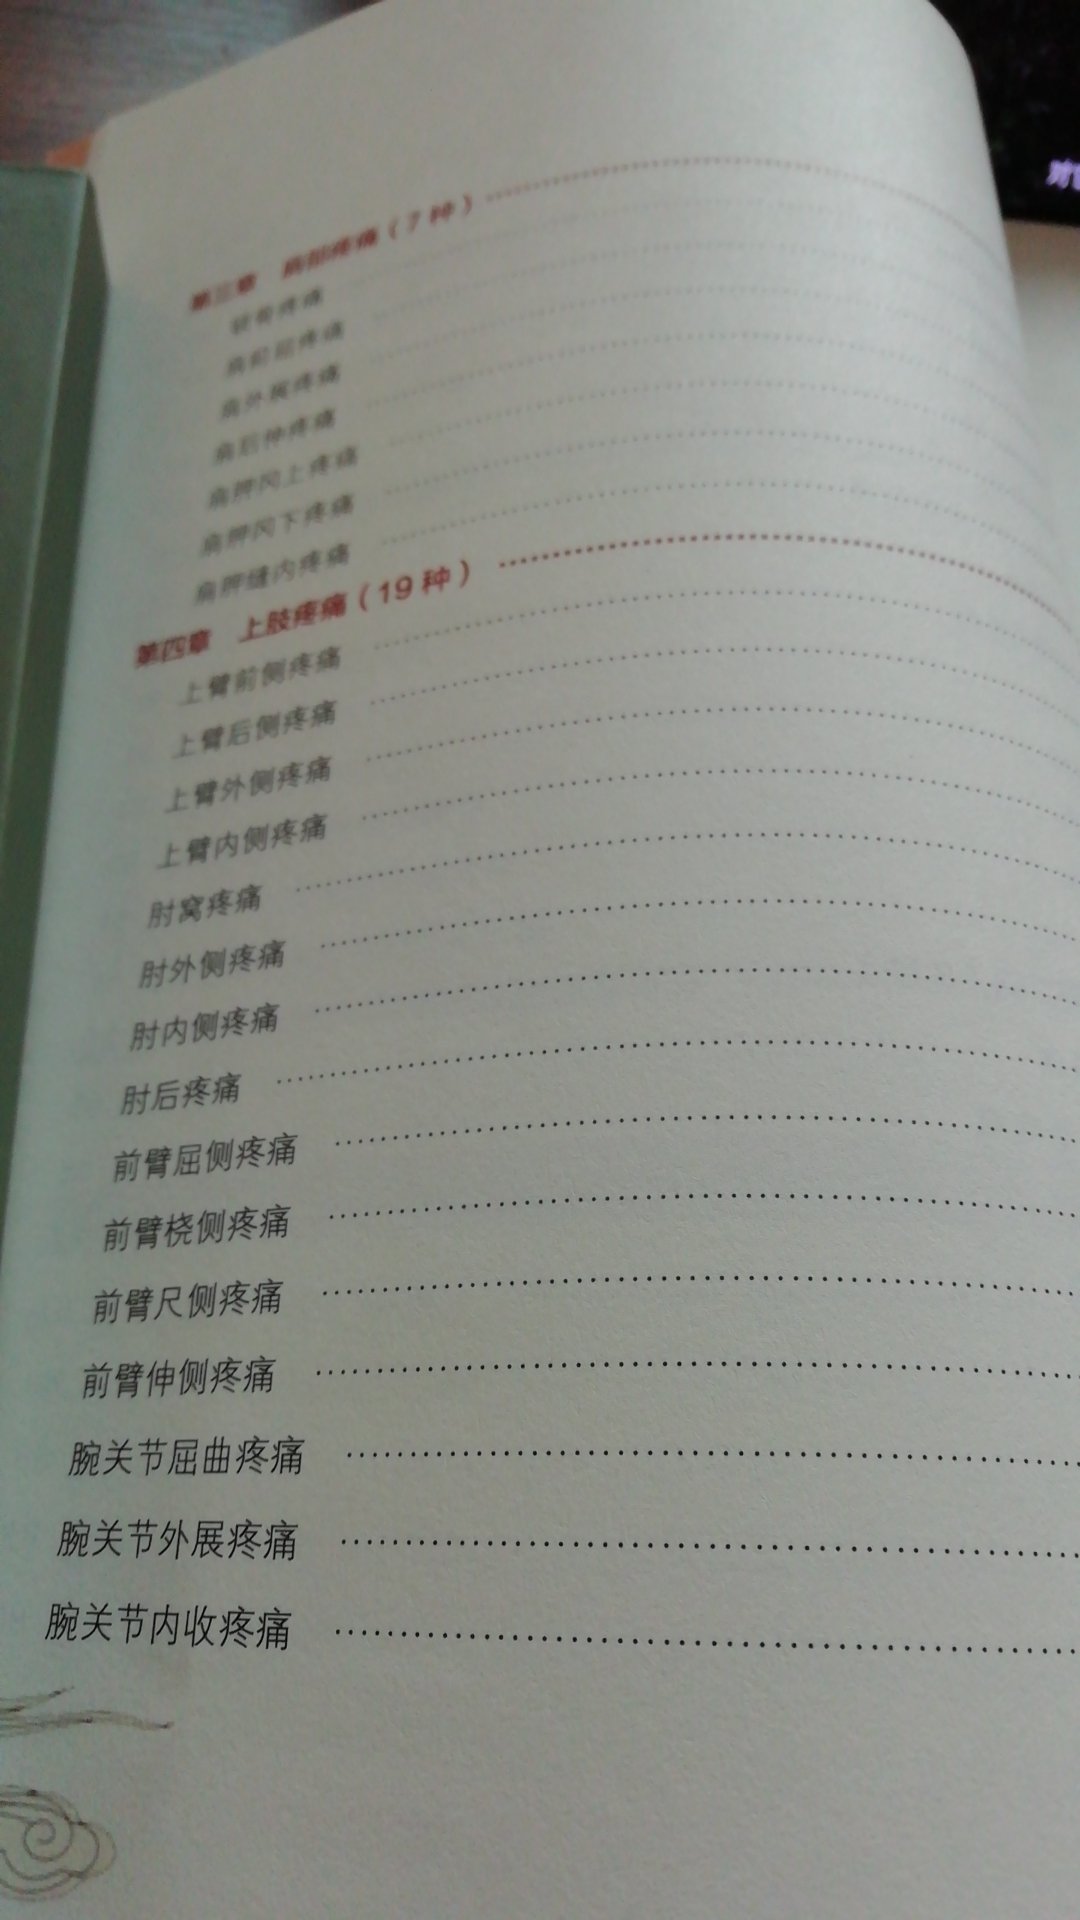 第三章 肩部疼痛（7 种）
锁骨疼痛
肩外展疼痛
肩后伸疼痛
肩胛冈上疼痛
肩胛冈下疼痛
肩胛缝内疼痛
第四章 上肢疼痛（19 种）
上臂前侧疼痛
上臂后侧疼痛
上臂外侧疼痛
上臂内侧疼痛
肘窝疼痛
肘外侧疼痛
肘内侧疼痛
肘后疼痛
前臂屈侧疼痛
前臂桡侧疼痛
前臂尺侧疼痛
前臂伸侧疼痛
腕关节屈曲疼痛
腕关节外展疼痛
腕关节内收疼痛